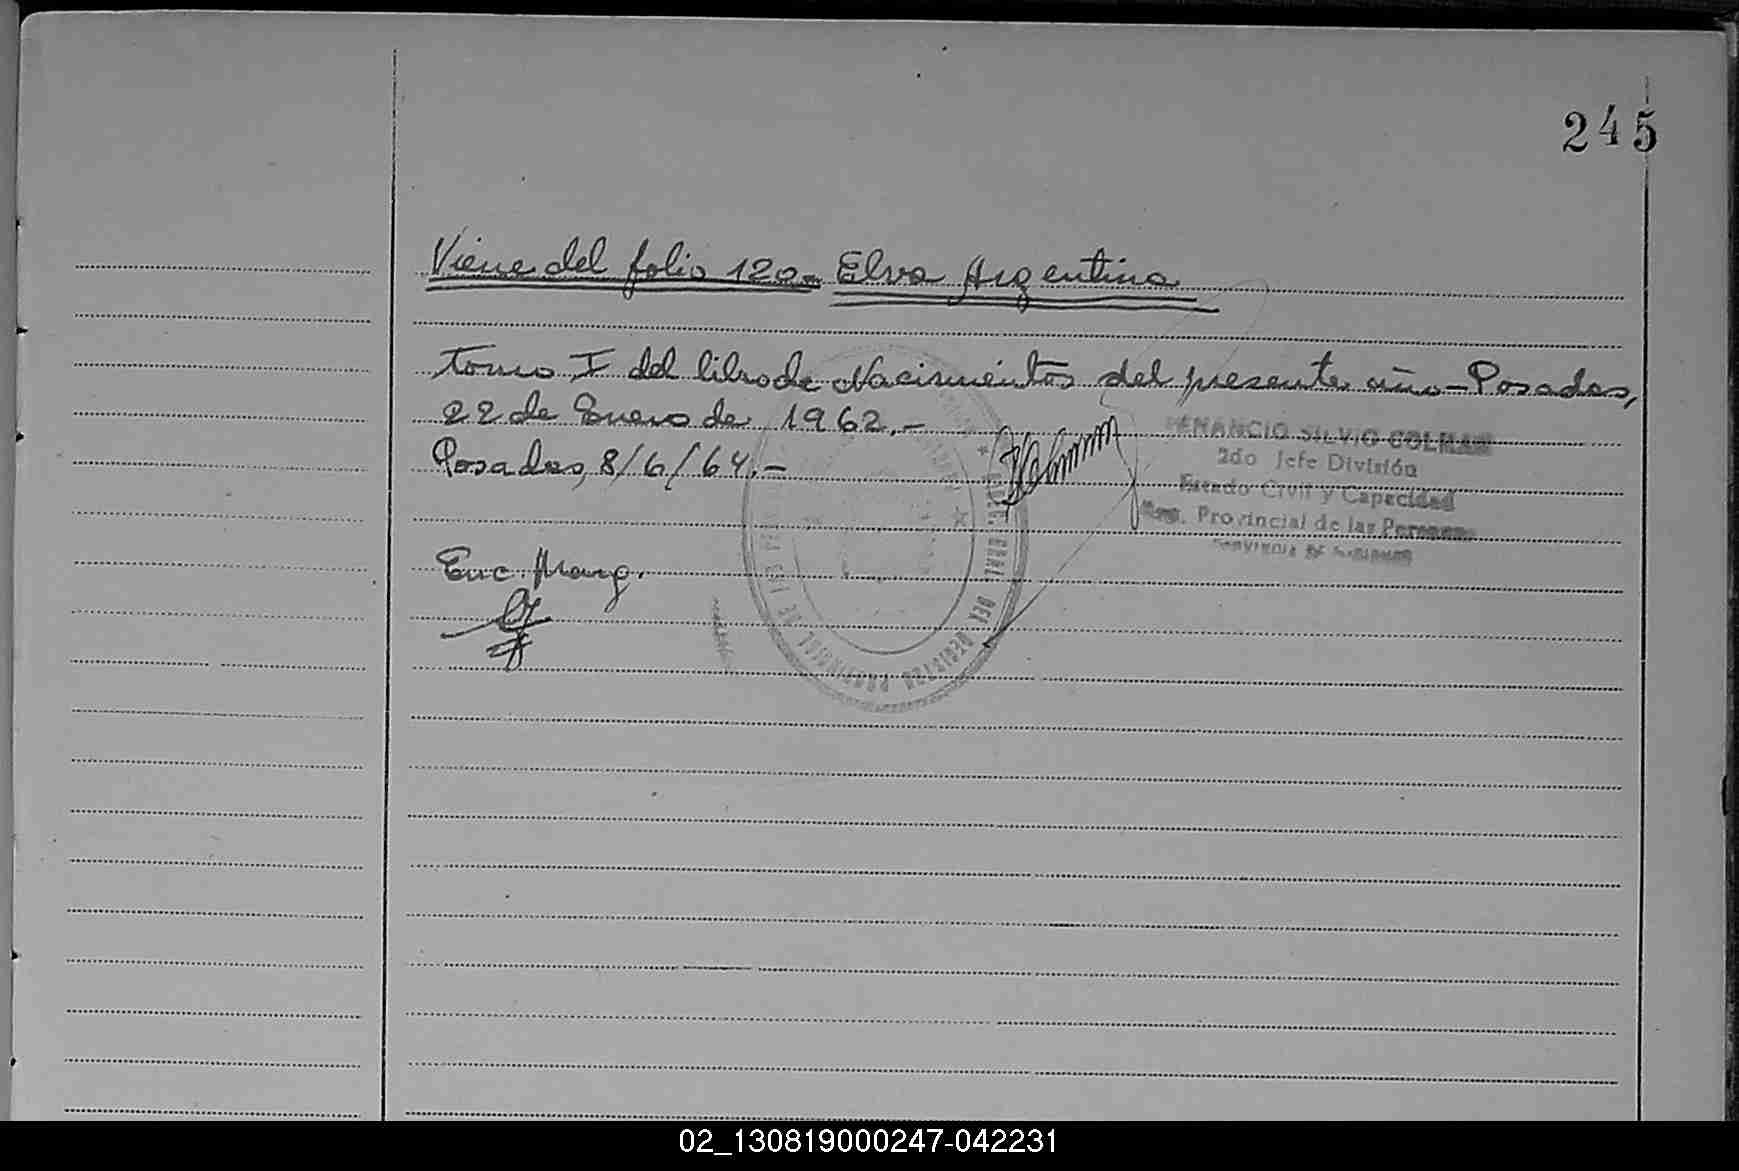 245
Viene del folio 120.- Elva Argentina
tomo I del libro de Nacimientos del presente año - Posadas,
22 de Enero de 1962.-
Posadas, 8/6/64.-
VENANCIO SILVIO COLMAN
2do Jefe División
Estado Civil y Capacidad
Reg. Provincial de las Personas
PROVINCIA DE MISIONES
DEL REGISTRO PROVINCIAL DE LAS
Enc. Marg.
02_130819000247-042231